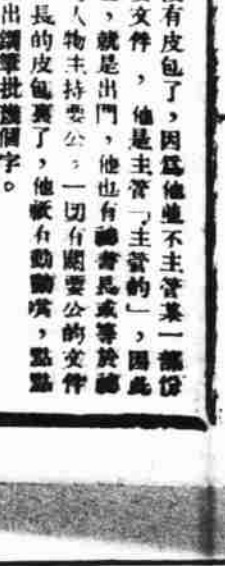 有皮包了，因爲他並不主管某一部份
文件，他是主管「主管的」，因此
，就是出門，他也有祕書長或等於祕
人物主持要公，一切有關要公的文件
長的皮包裏了，他祇有動動嘴，點點
出鋼筆批幾個字。